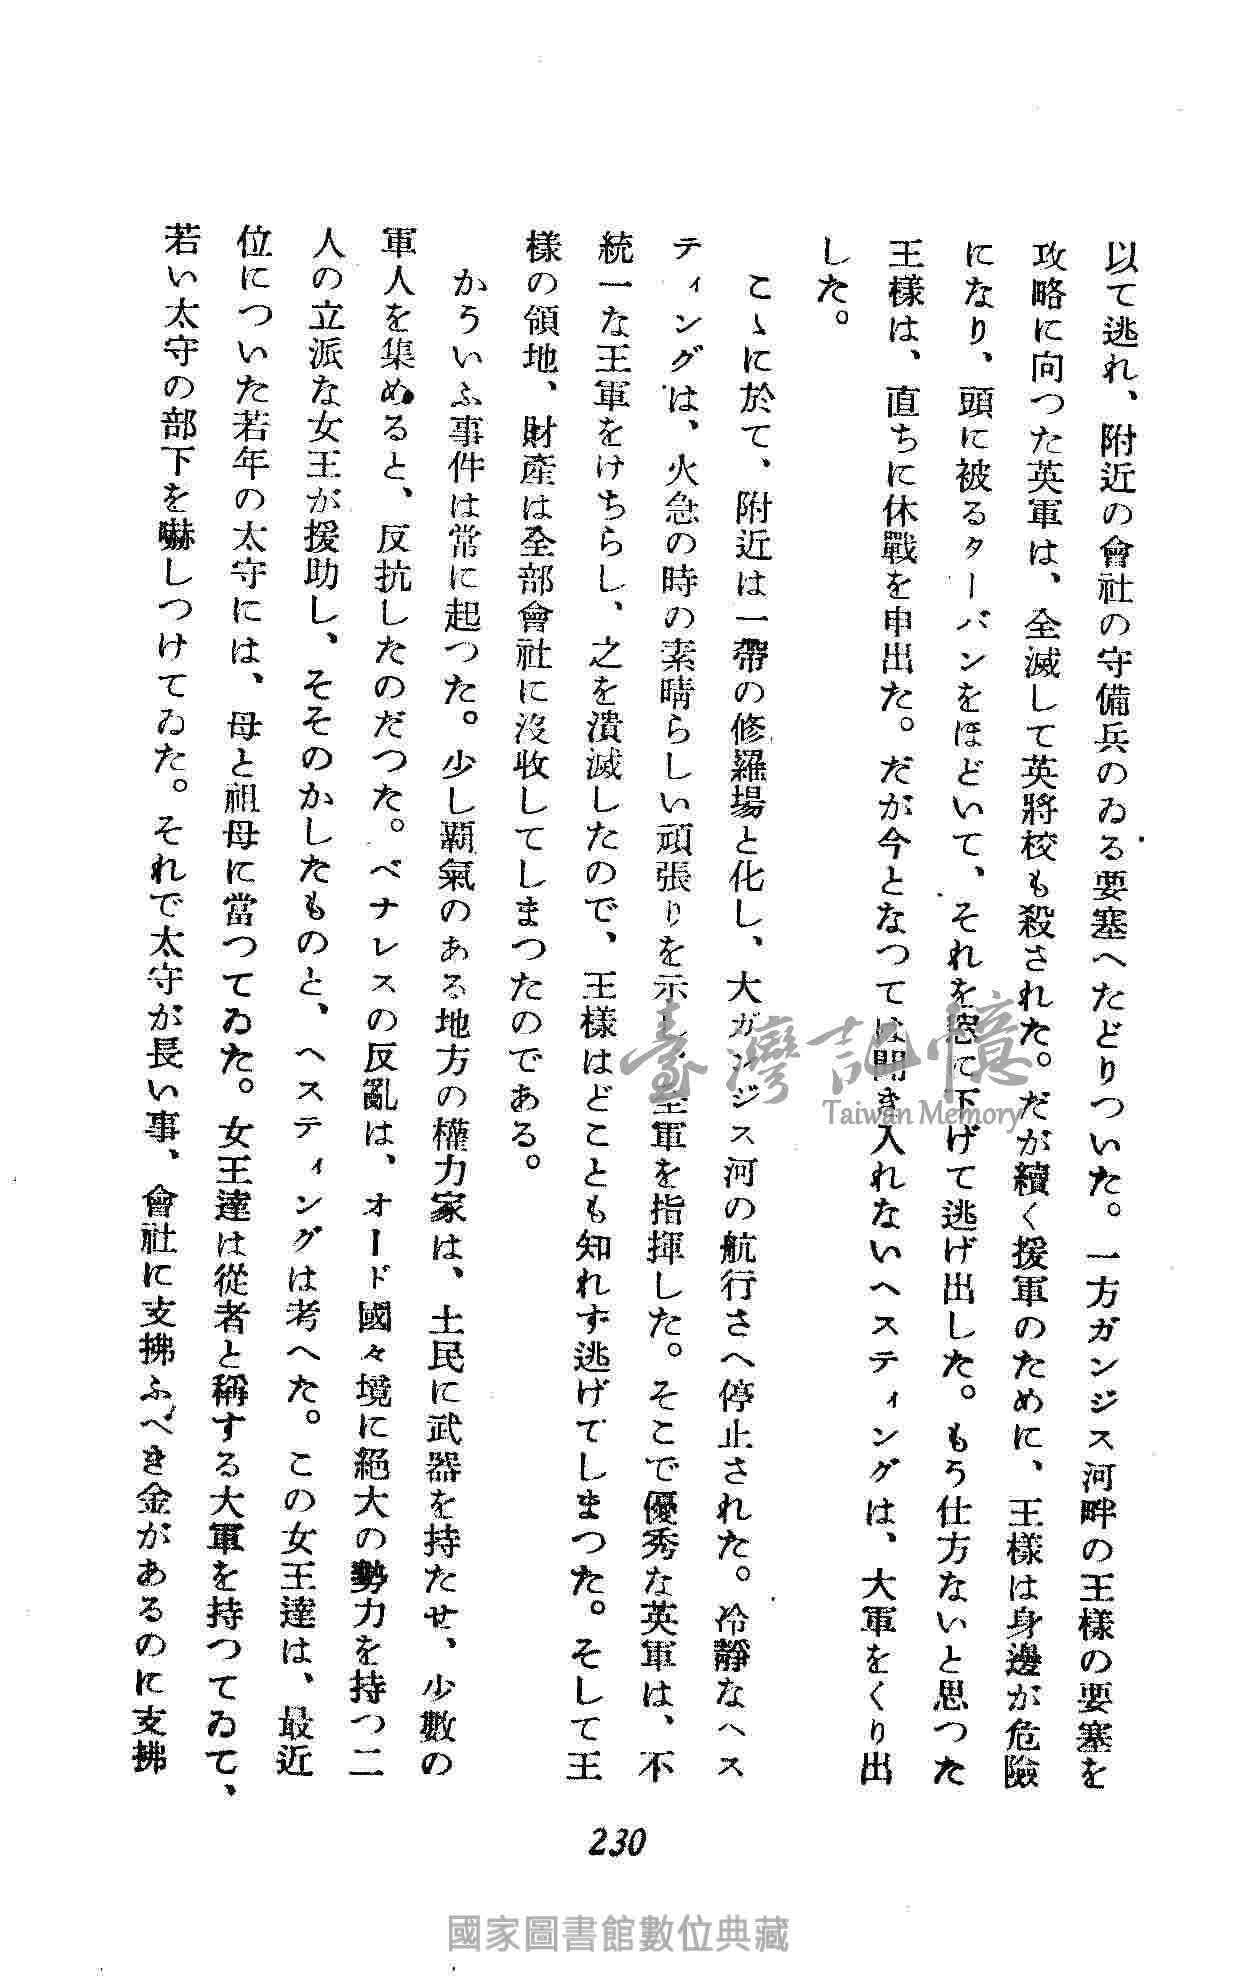 以て逃れ、附近の會社の守備兵のゐる要塞へたどりついた。一方ガンジス河畔の王樣の要塞を
攻略に向つた英軍は、全滅して英將校も殺された。だが續く援軍のために、王樣は身邊が危險
になり、頭に被るターバンをほどいて、それを窓に下げて逃げ出した。もう仕方ないと思つた
王樣は、直ちに休戰を申出た。だが今となつては聞き入れないヘスティングは、大軍をくり出
した。
こゝに於て、附近は一帶の修羅場と化し、大ガンジス河の航行さへ停止された。冷靜なヘス
ティングは、火急の時の素晴らしい頑張りを示し、全軍を指揮した。そこで優秀な英軍は、不
統一な王軍をけちらし、之を潰滅したので、王樣はどことも知れず逃げてしまつた。そして王
樣の領地、財產は全部會社に沒收してしまつたのである。
かういふ事件は常に起つた。少し覇氣のある地方の權力家は、土民に武器を持たせ、少數の
軍人を集めると、反抗したのだつた。ベナレスの反亂は、オード國々境に絕大の勢力を持つ二
人の立派な女王が援助し、そそのかしたものと、ヘスティングは考へた。この女王達は、最近
位についた若年の太守には、母と祖母に當つてゐた。女王達は從者と稱する大軍を持つてゐて、
若い太守の部下を嚇しつけてゐた。それで太守が長い事、會社に支拂ふべき金があるのに支拂
230
臺灣記憶
Taiwan Memory
國家圖書館數位典藏